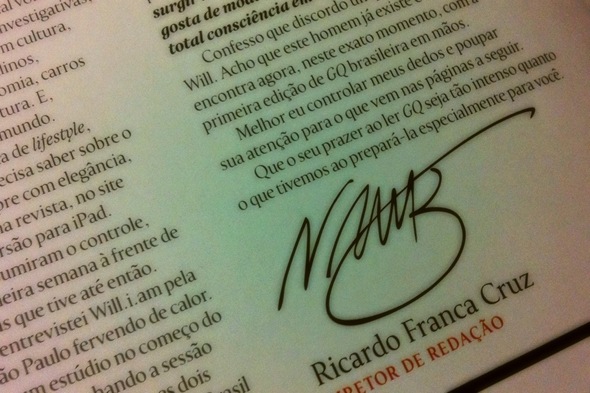 investigativas,
m cultura,
linos,
omia, carros
tura. E,
mundo.
a de lifestyle,
ecisa saber sobre o
re com elegância,
a revista, no site
rsão para iPad.
umiram o controle,
eira semana à frente de
s que tive até então.
entrevistei Will.i.am pela
ão Paulo fervendo de calor.
m estúdio no começo do
hando a sessão
os dois
asil
surgi
gosta de mod
total consciência em
Confesso que discordo
Will. Acho que este homem já existe e
encontra agora, neste exato momento, com a
primeira edição de GQ brasileira em mãos.
Melhor eu controlar meus dedos e poupar
sua atenção para o que vem nas páginas a seguir.
Que o seu prazer ao ler GQ seja tão intenso quanto
o que tivemos ao prepará-la especialmente para você.
Ricardo Franca Cruz
DIRETOR DE REDAÇÃO